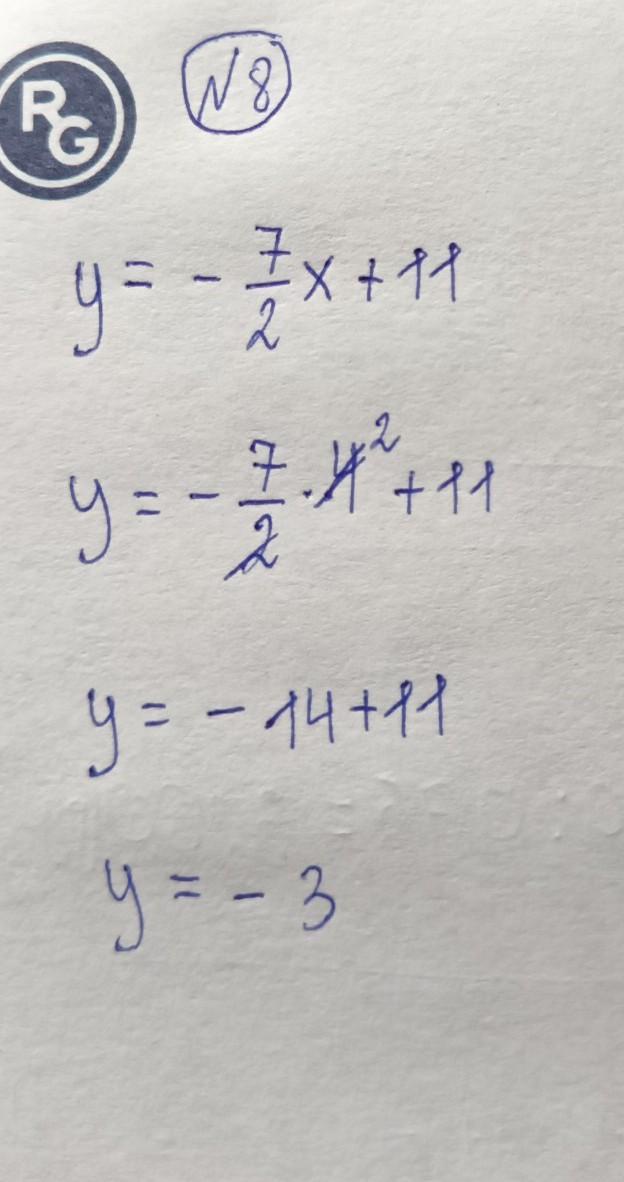 RG
N8
y = - 7/2 x + 11
y = - 7/2 · 4 2 + 11
y = - 14 + 11
y = - 3